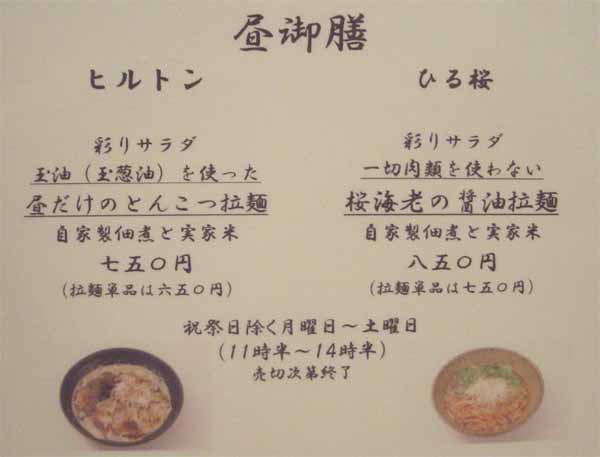 昼御膳
ヒルトン
彩りサラダ
玉油（玉葱油）を使った
昼だけのとんこつ拉麺
自家製佃煮と実家米
七五〇円
（拉麺単品は六五〇円）
ひる桜
彩りサラダ
一切肉類を使わない
桜海老の醤油拉麺
自家製佃煮と実家米
八五〇円
（拉麺単品は七五〇円）
祝祭日除く月曜日～土曜日
（11時半～14時半）
売切次第終了